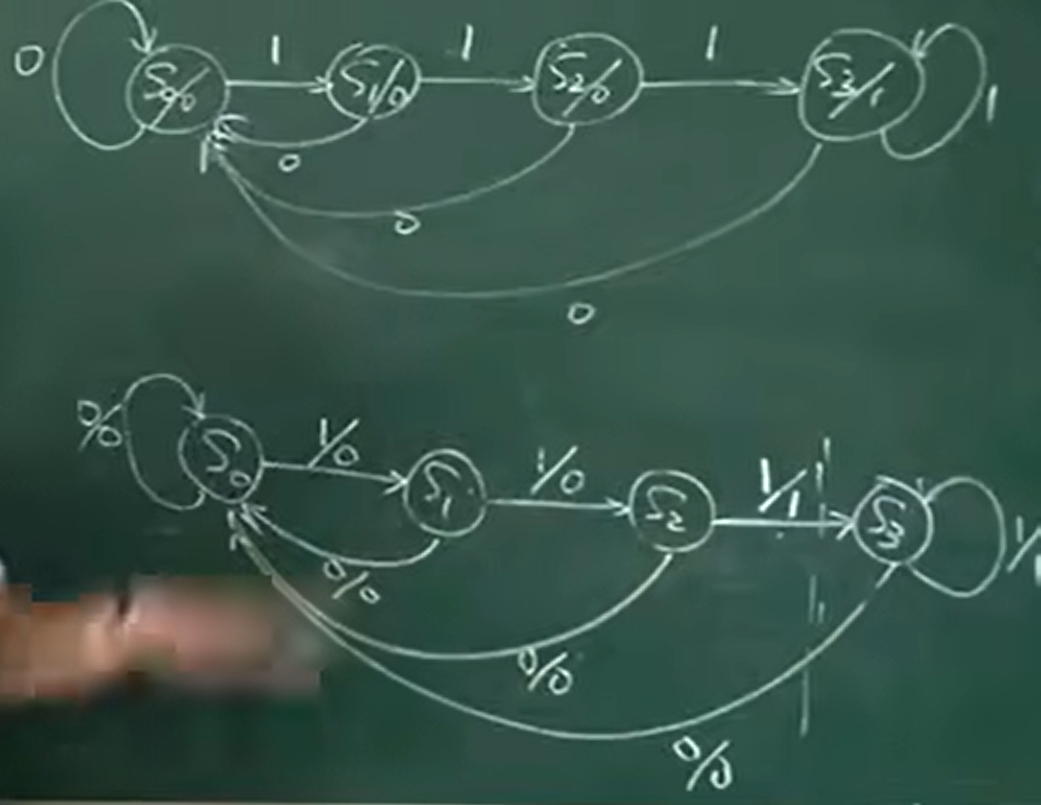 0 S0/0 1 S1/0 1 S2/0 1 S3/1 1
0
0
0
0/0 S0 1/0 S1 1/0 S2 1/1 S3
0/0
0/0
0/0